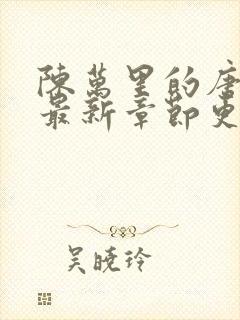 陳萬里的唐
最新章節更
吳曉玲